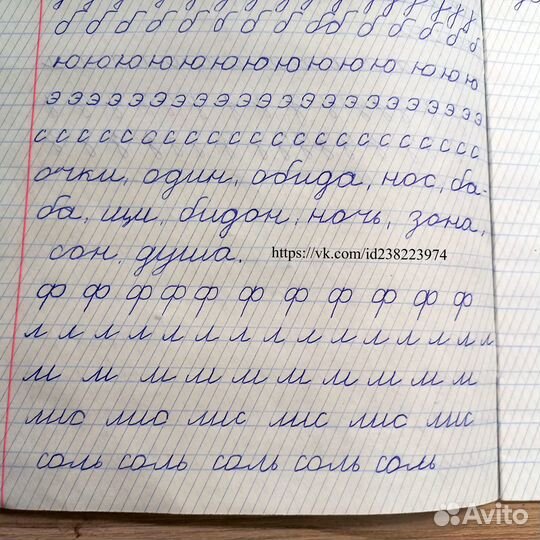 б б б б б б б б б б бо б б б б б
ю ю ю ю ю ю ю ю ю ю ю ю ю ю
э э э э э э э э э э э э э э э э э э э э э
с с с с с с с с с с с с с с с с с с с с с с с
очки, один, обида, нос, ба-
ба, щи, бидон, ночь, зона,
сон, душа.
https://vk.com/id238223974
ф ф ф ф ф ф ф ф ф ф ф
л л л л л л л л л л л л л л л л л л л л л
м м м м м м м м м м м
лис лис лис лис лис лис
соль соль соль соль соль
Avito